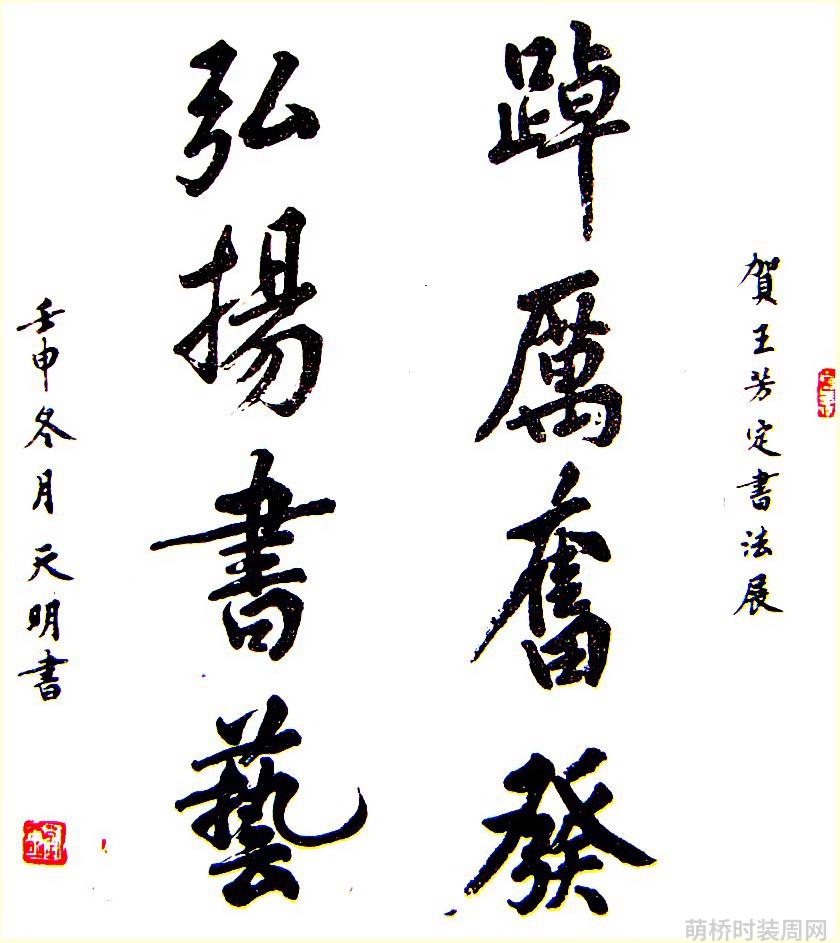 賀王芳定書法展
踔厲奮發
弘揚書藝
壬申冬月天明書
萌桥时装周网